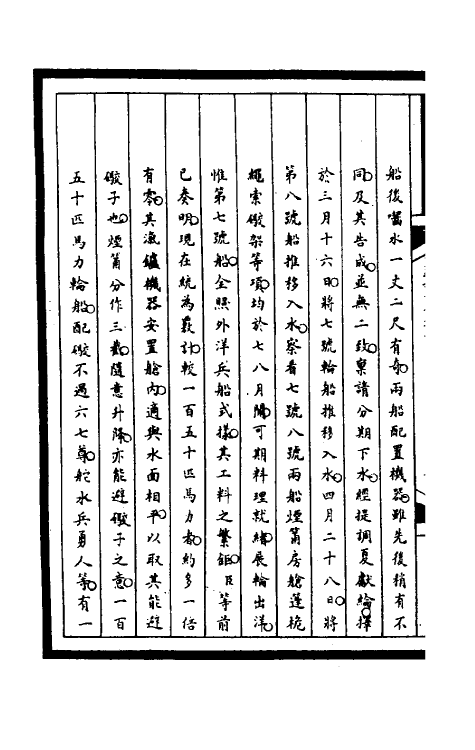 船後噹水一丈二尺有奇兩船配置機器雖先後稍有不
同及其告成並無二致稟請分期下水經提調夏獻綸擇
於三月十六日將七號輪船推移入水四月二十八日將
第八號船推移入水察看七號八號兩船煙筩房艙蓬桅
繩索礮架等項均於七八月間可期料理就緒展輪出洋
惟第七號船全照外洋兵船式樣其工料之繁鉅臣等前
已奏明現在統為覈計較一百五十匹馬力者約多一倍
有零其滊鑪機器安置艙內適與水面相平以取其能避
礮子也煙筩分作三截隨意升降亦能避礮子之意一百
五十匹馬力輪船配礮不過六七尊舵水兵勇人等有一